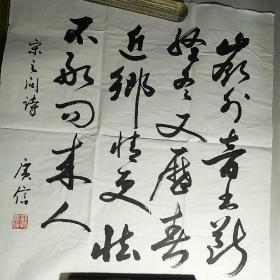 嶺外音书断
经冬又历春
近乡情更怯
不敢问来人
宋之问诗
广信